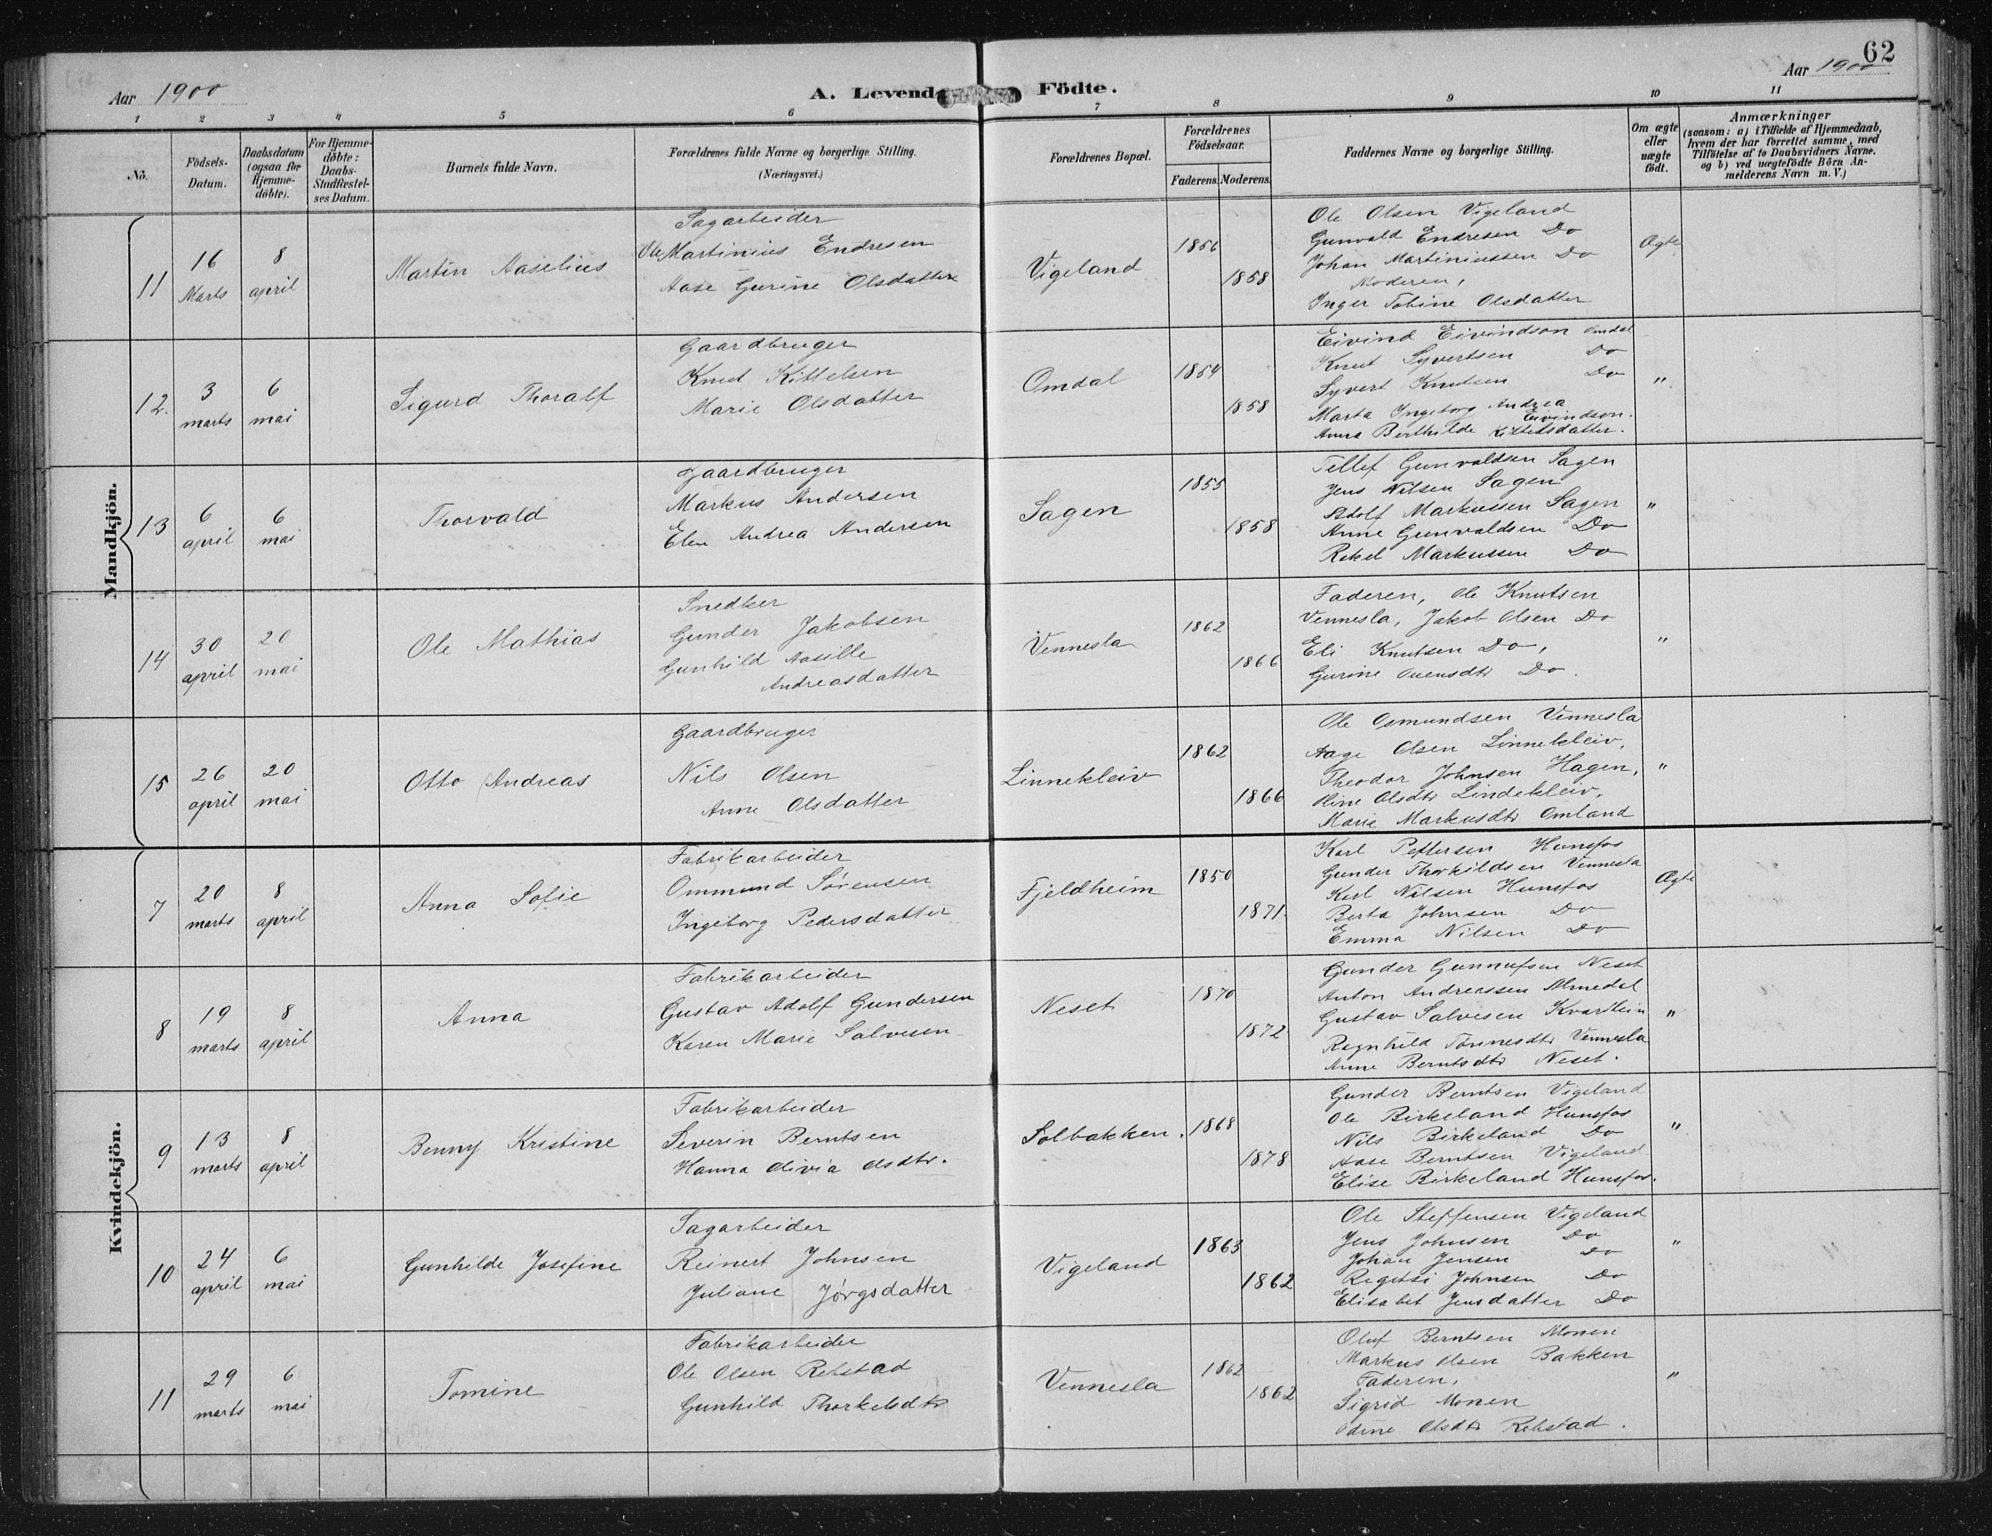 62
Aar 1900
A. Levende Födte.
Aar 1900
1 2 3 4 5 6 7 8 9 10 11
Nö.
Födsels-Datum.
Daabsdatum (ogsaa for Hjemme-döbte).
For Hjemme-döbte: Daabs-Stadfæstel-ses Datum.
Barnets fulde Navn.
Forældrenes fulde Navne og borgerlige Stilling.
(Næringsvei.)
Forældrenes Bopæl.
Forældrenes Födselsaar.
Faderens. Moderens.
Faddernes Navne og borgerlige Stilling.
Om ægte eller uægte födt.
Anmærkninger
(saasom: a) i Tilfælde af Hjemmedaab, hvem der har forrettet samme, med Tilföielse af to Daabsvidners Navne. og b) ved uægtefödte Börn An-melderens Navn m. V.)
Mandkjön.
11
16 Marts
8 april
Martin Aaselius
Sagarbeider
Ole Martinius Endresen
Aase Gurine Olsdatter
Vigeland
1856
1858
Ole Olsen Vigeland
Gunvald Endresen Do
Johan Martiniussen Do
Moderen,
Inger Tobine Olsdatter
Ægte
12.
3 marts
6 mai
Sigurd Thoralf
Gaardbruger
Knut Kittelsen
Marie Olsdatter
Omdal
1854
1858
Eivind Eivindson Omdal
Knut Syvertsen Do
Syvert Knutsen Do
Marta Ingeborg Andrea
Eivindson.
Anna Berthilde Kittelsdatter.
"
13
6 april
6 mai
Thorvald
Gaardbruger
Markus Andersen
Elen Andrea Andersen
Sagen
1855
1858
Tellef Gunvaldsen Sagen
Jens Nilsen Sagen
Adolf Markussen Sagen
Anne Gunvaldsen Do
Rakel Markussen Do
"
14
30 april
20 mai
Ole Mathias
Snedker
Gunder Jakobsen
Gunhild Aasille
Andreasdatter
Vennesla
1862
1866
Faderen, Ole Knutsen
Vennesla, Jakob Olsen Do
Eli Knutsen Do,
Gurine Do.
"
15
26 april
20 mai
Otto Andreas
Gaardbruger
Nils Olsen
Anne Olsdatter
Linnekleiv
1862
1866
Ole Osmundsen Vennesla
Aage Olsen Linnekleiv,
Theodor Johnsen Hagen,
Olsdtr Lindekleiv,
Marie Markusdtr Omland
"
Kvindekjön.
7
20 marts
8 april
Anna Sofie
Fabrikarbeider
Ommund Sørensen
Ingeborg Pedersdatter
Fjeldheim
1850
1871
Karl Pettersen Hunsfos
Gunder Thorkildsen Vennesla
Karl Nilsen Hunsfos
Berta Johnsen Do
Emma Nilsen Do
Ægte
8
19 marts
8 april
Anna
Fabrikarbeider
Gustav Adolf Gundersen
Karen Marie Salvesen
Neset
1870
1872
Gunder Gunnufsen Neset
Anton Andreassen Almedal
Gustav Salvesen Kvartlein
Ragnhild Tønnesdtr Vennesla
Anne Berntsdtr Neset.
"
9
13 marts
8 april
Benny Kristine
Fabrikarbeider
Severin Berntsen
Hanna Olivia Olsdtr.
Solbakken.
1868
1878
Gunder Berntsen Vigeland
Ole Birkeland Hunsfos
Nils Birkeland Do
Aase Berntsen Vigeland
Elise Birkeland Hunsfos.
"
10
24 april
6 mai
Gunhilde Josefine
Sagarbeider
Reinert Johnsen
Juliane Jørgsdatter
Vigeland
1863
1862
Ole Steffensen Vigeland
Jens Johnsen Do
Johan Jensen Do
Johnsen Do
Elisabet Jensdatter Do
"
11
29 marts
6 mai
Tomine
Fabrikarbeider
Ole Olsen Rebstad
Gunhild Thorkelsdtr
Vennesla
1862
1862
Oluf Berntsen Monen
Markus Olsen Bakken
Faderen,
Sigrid Monen
Odine Olsdtr Rebstad.
"